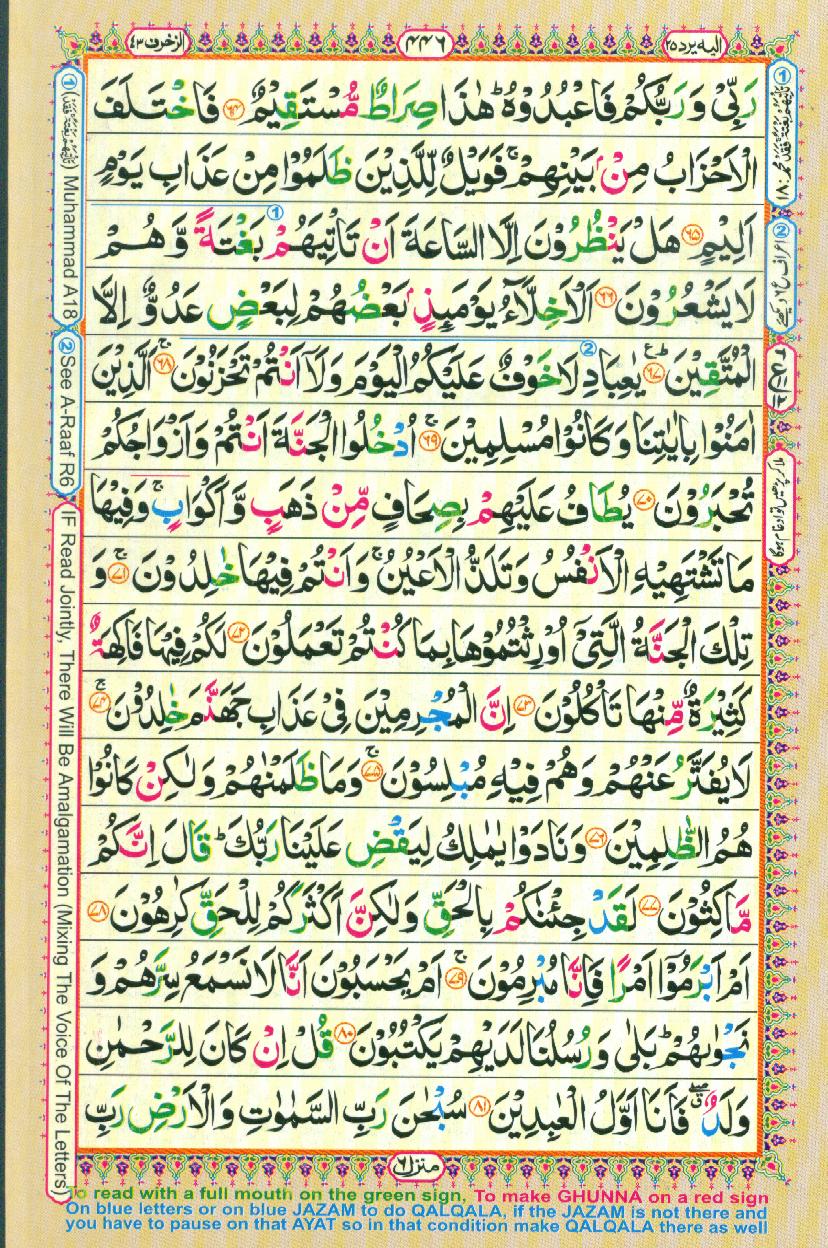 الیه یرد ۲۵
۴۴۶
الزخرف ۴۳
رَبِّیْ وَرَبُّكُمْ فَاعْبُدُوْهُ ؕ هٰذَا صِرَاطٌ مُّسْتَقِیْمٌ ۶۴ فَاخْتَلَفَ
الْاَحْزَابُ مِنْۢ بَیْنِهِمْ ۚ فَوَیْلٌ لِّلَّذِیْنَ ظَلَمُوْا مِنْ عَذَابِ یَوْمٍ
اَلِیْمٍ ۶۵ هَلْ یَنْظُرُوْنَ اِلَّا السَّاعَةَ اَنْ تَاْتِیَهُمْ بَغْتَةً وَّهُمْ
لَا یَشْعُرُوْنَ ۶۶ اَلْاَخِلَّآءُ یَوْمَىِٕذٍۭ بَعْضُهُمْ لِبَعْضٍ عَدُوٌّ اِلَّا
الْمُتَّقِیْنَ ۶۷ یٰعِبَادِ لَا خَوْفٌ عَلَیْكُمُ الْیَوْمَ وَلَاۤ اَنْتُمْ تَحْزَنُوْنَ ۚ ۶۸ اَلَّذِیْنَ
اٰمَنُوْا بِاٰیٰتِنَا وَكَانُوْا مُسْلِمِیْنَ ۚ ۶۹ اُدْخُلُوا الْجَنَّةَ اَنْتُمْ وَاَزْوَاجُكُمْ
تُحْبَرُوْنَ ۷۰ یُطَافُ عَلَیْهِمْ بِصِحَافٍ مِّنْ ذَهَبٍ وَّاَكْوَابٍ ۚ وَفِیْهَا
مَا تَشْتَهِیْهِ الْاَنْفُسُ وَتَلَذُّ الْاَعْیُنُ ۚ وَاَنْتُمْ فِیْهَا خٰلِدُوْنَ ۚ ۷۱ وَ
تِلْكَ الْجَنَّةُ الَّتِیْۤ اُوْرِثْتُمُوْهَا بِمَا كُنْتُمْ تَعْمَلُوْنَ ۷۲ لَكُمْ فِیْهَا فَاكِهَةٌ
كَثِیْرَةٌ مِّنْهَا تَاْكُلُوْنَ ۷۳ اِنَّ الْمُجْرِمِیْنَ فِیْ عَذَابِ جَهَنَّمَ خٰلِدُوْنَ ۚ ۷۴
لَا یُفَتَّرُ عَنْهُمْ وَهُمْ فِیْهِ مُبْلِسُوْنَ ۚ ۷۵ وَمَا ظَلَمْنٰهُمْ وَلٰكِنْ كَانُوْا
هُمُ الظّٰلِمِیْنَ ۷۶ وَنَادَوْا یٰمٰلِكُ لِیَقْضِ عَلَیْنَا رَبُّكَ ؕ قَالَ اِنَّكُمْ
مّٰكِثُوْنَ ۷۷ لَقَدْ جِئْنٰكُمْ بِالْحَقِّ وَلٰكِنَّ اَكْثَرَكُمْ لِلْحَقِّ كٰرِهُوْنَ ۷۸
اَمْ اَبْرَمُوْۤا اَمْرًا فَاِنَّا مُبْرِمُوْنَ ۚ ۷۹ اَمْ یَحْسَبُوْنَ اَنَّا لَا نَسْمَعُ سِرَّهُمْ وَ
نَجْوٰىهُمْ ؕ بَلٰى وَرُسُلُنَا لَدَیْهِمْ یَكْتُبُوْنَ ۸۰ قُلْ اِنْ كَانَ لِلرَّحْمٰنِ
وَلَدٌ ۖۗ فَاَنَا اَوَّلُ الْعٰبِدِیْنَ ۸۱ سُبْحٰنَ رَبِّ السَّمٰوٰتِ وَالْاَرْضِ رَبِّ
منزل ۶
① Muhammad A18
② See A-Raaf R6
IF Read Jointly, There Will Be Amalgamation (Mixing The Voice Of The Letters)
To read with a full mouth on the green sign, To make GHUNNA on a red sign
On blue letters or on blue JAZAM to do QALQALA, if the JAZAM is not there and
you have to pause on that AYAT so in that condition make QALQALA there as well